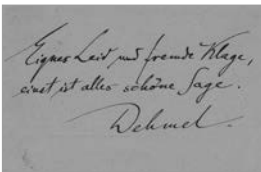 Eignes Leid und fremde Klage,
einst ist alles schöne Sage.
Dehmel.